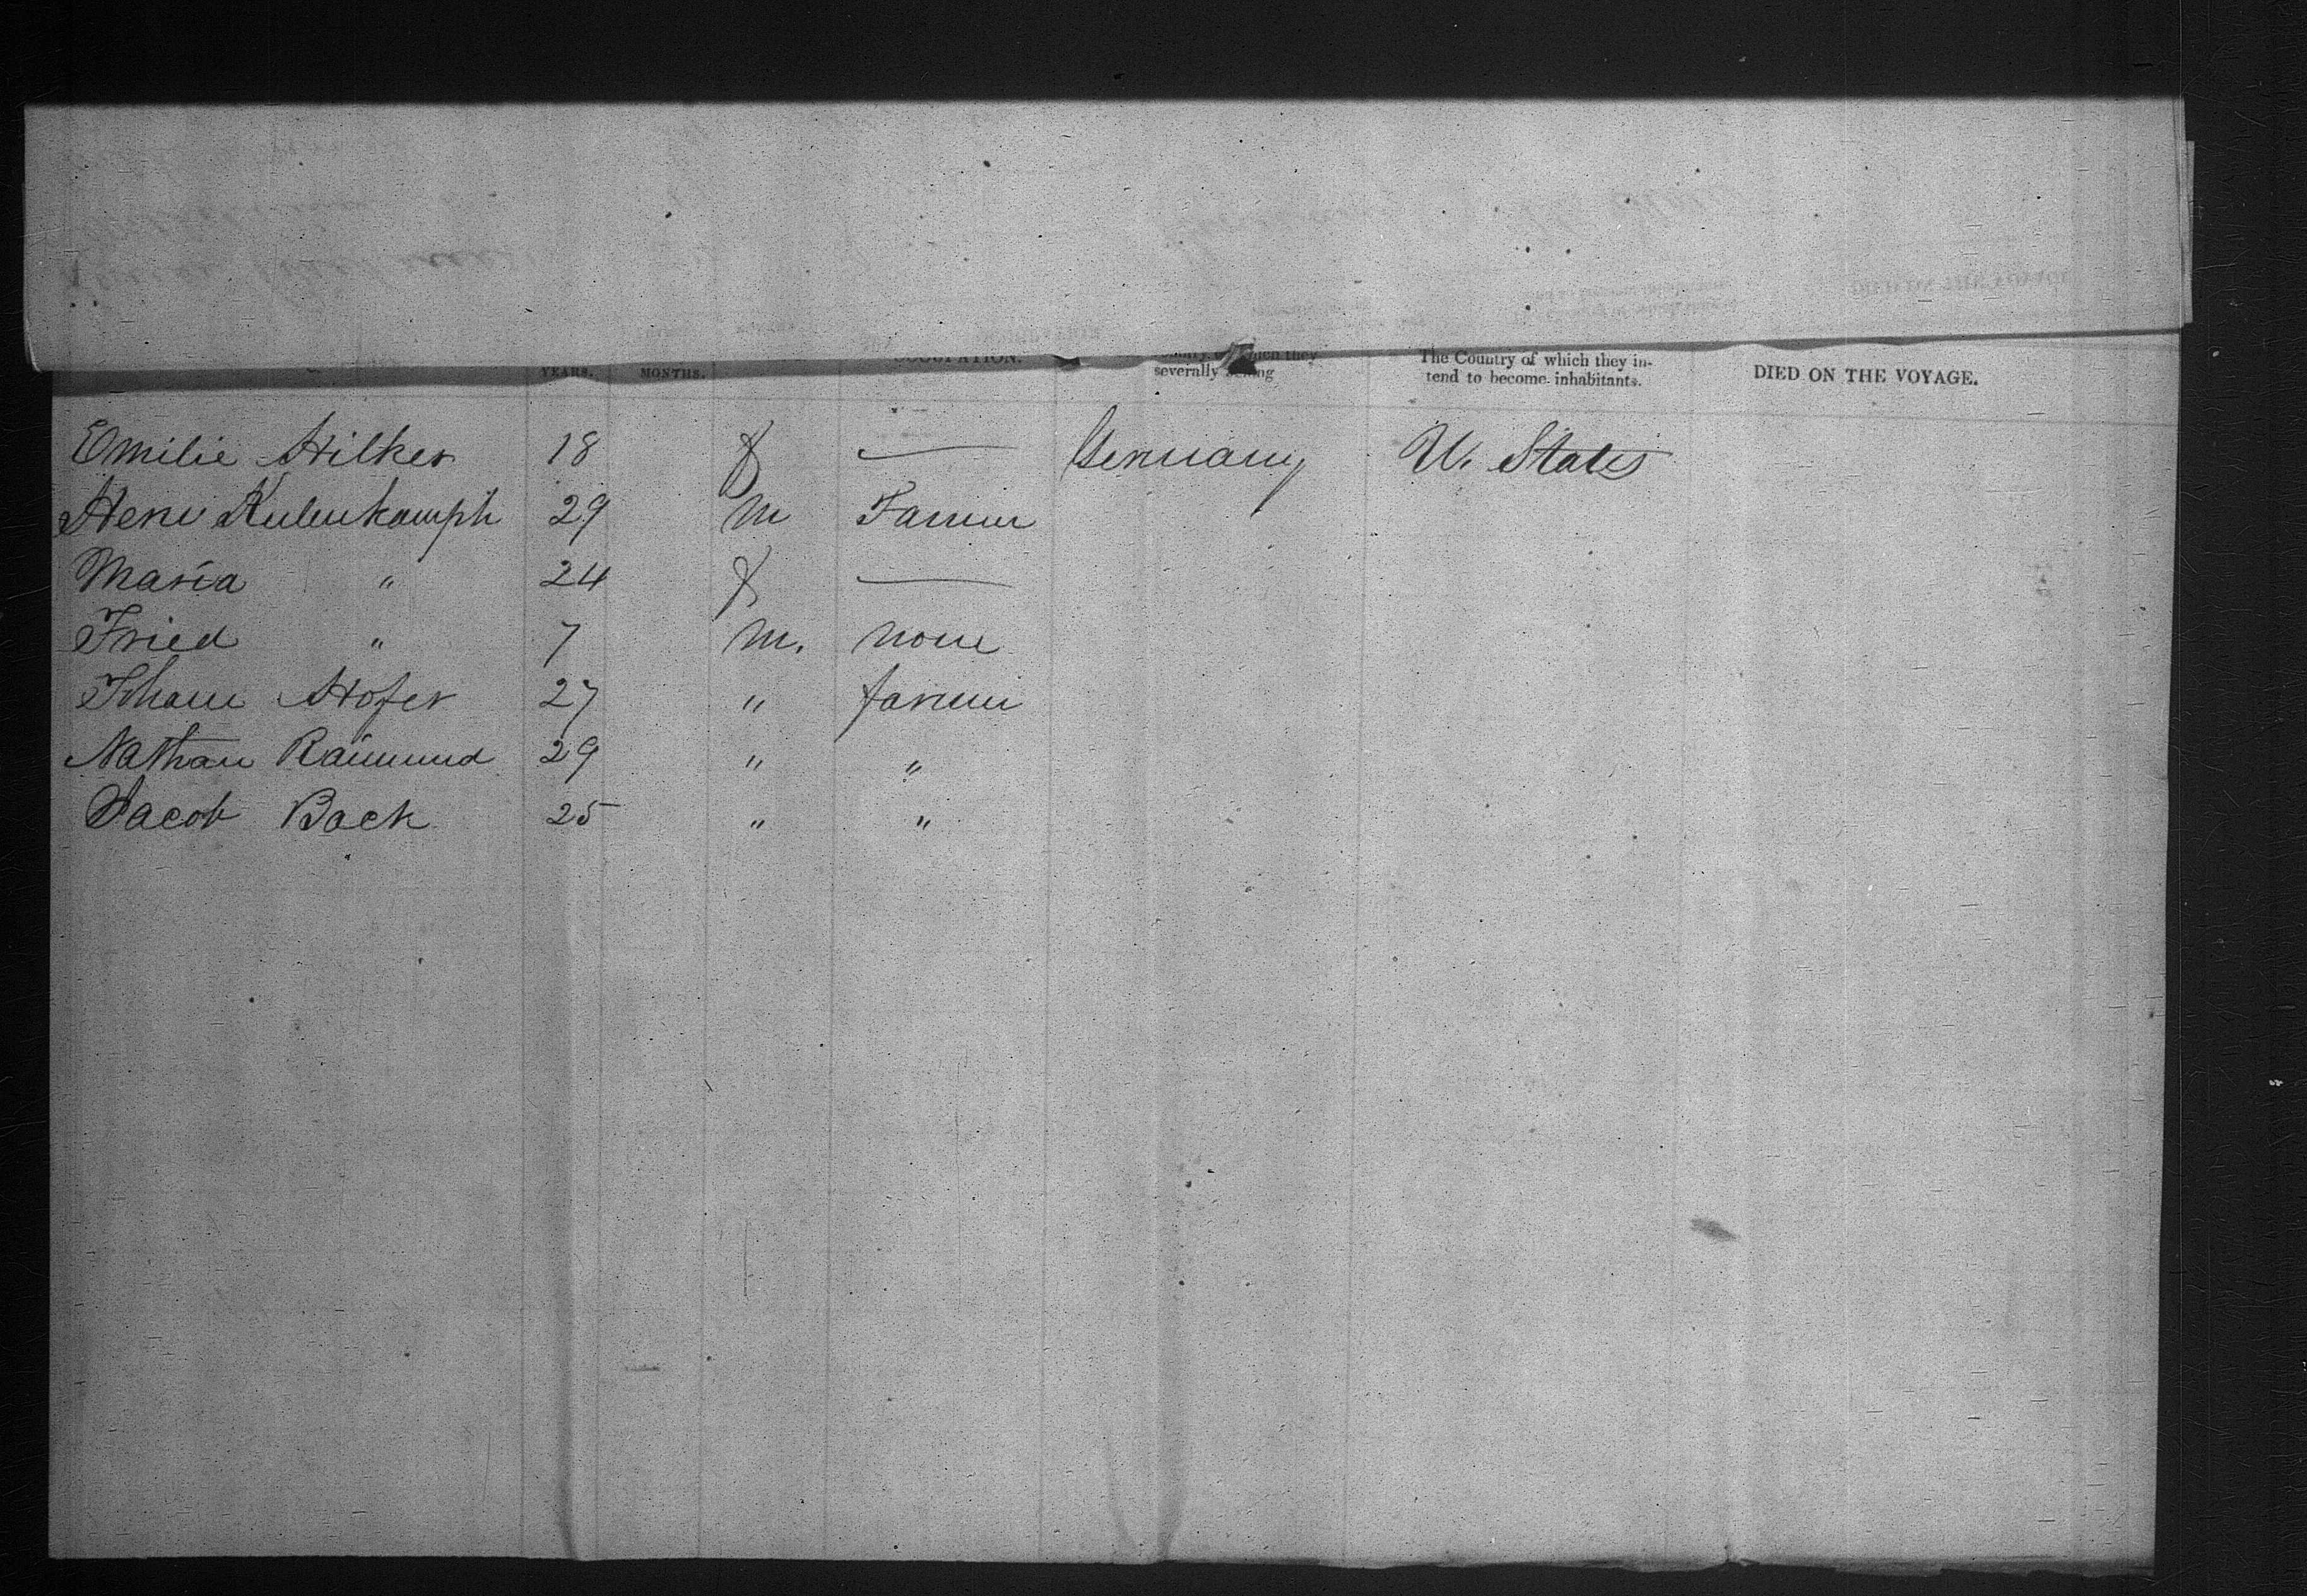 OCCUPATION. which they The Country of which they in-
YEARS. MONTHS. severally belong tend to become inhabitants. DIED ON THE VOYAGE.
Emilie Hilker 18 f — Germany U. States
Henr Kulenkamph 29 m Farmer
Maria " 24 f —
Fried " 7 m. none
Johann Hofer 27 " farmer
Nathan Raimund 29 " "
Jacob Back 25 " "